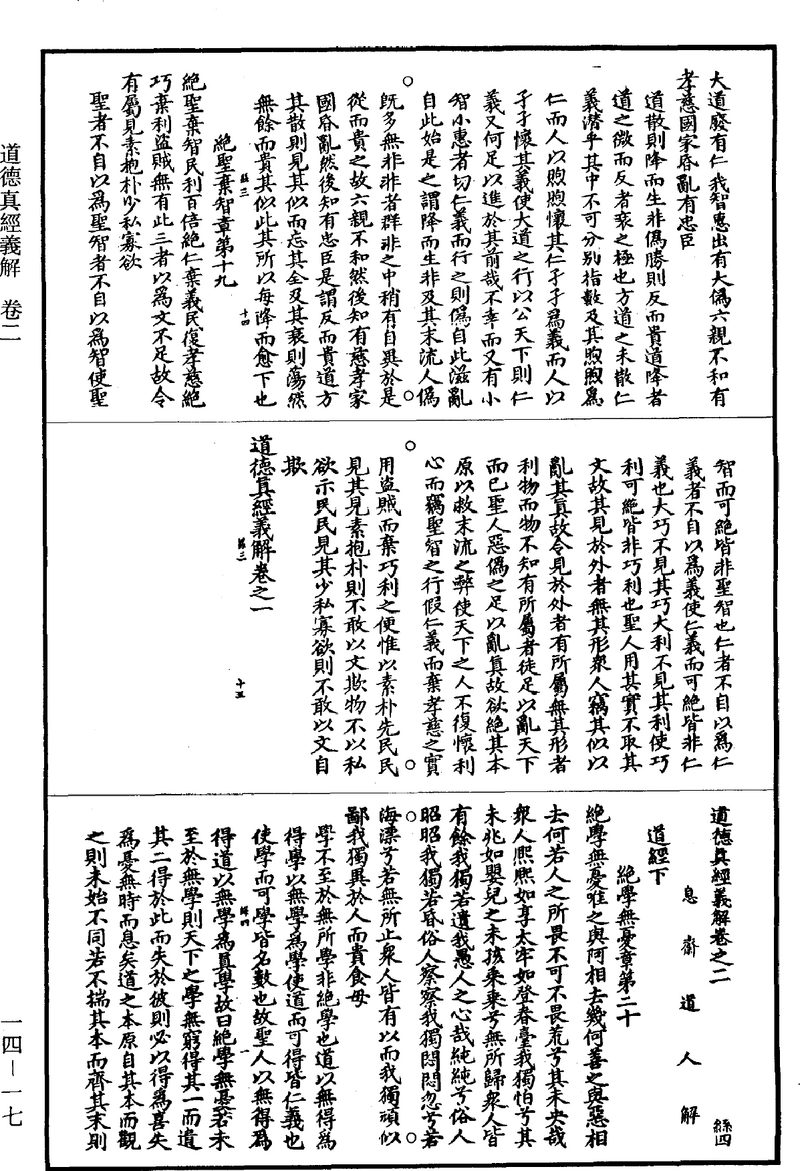 大道廢有仁義智惠出有大偽六親不和有
孝慈國家昏亂有忠臣
道散則降而生非偽勝則反而貴道降者
道之微而反者衰之極也方道之未散仁
義潛乎其中不可分別指數及其煦煦為
仁而人以煦煦懷其仁孑孑為義而人以
孑孑懷其義使大道之行以公天下則仁
義又何足以進於其前哉不幸而又有小
智小惠者切仁義而行之則偽自此滋亂
自此始是之謂降而生非及其末流人偽
旣多無非非者群非之中稍有自異於是
從而貴之故六親不和然後知有慈孝家
國昏亂然後知有忠臣是謂反而貴道方
其散則見其似而忘其全及其衰則蕩然
無餘而貴其似此其所以每降而愈下也
絲三
十四
絕聖棄智章第十九
絕聖棄智民利百倍絕仁棄義民復孝慈絕
巧棄利盜賊無有此三者以為文不足故令
有屬見素抱朴少私寡欲
聖者不自以為聖智者不自以為智使聖
智而可絕皆非聖智也仁者不自以為仁
義者不自以為義使仁義而可絕皆非仁
義也大巧不見其巧大利不見其利使巧
利可絕皆非巧利也聖人用其實不取其
文故其見於外者無其形衆人竊其似以
亂其真故令見於外者有所屬無其形者
利物而物不知有所屬者徒足以亂天下
而已聖人惡偽之足以亂真故欲絕其本
原以救末流之弊使天下之人不復懷利
心而竊聖智之行假仁義而棄孝慈之實
用盜賊而棄巧利之便惟以素朴先民民
見其見素抱朴則不敢以文欺物不以私
欲示民民見其少私寡欲則不敢以文自
欺
道德真經義解卷之一
絲三
十五
道德真經義解卷之二
絲四
息齋道人解
道經下
絕學無憂章第二十
絕學無憂唯之與阿相去幾何善之與惡相
去何若人之所畏不可不畏荒兮其未央哉
衆人熙熙如享太牢如登春臺我獨怕兮其
未兆如嬰兒之未孩乘乘兮無所歸衆人皆
有餘我獨若遺我愚人之心哉純純兮俗人
昭昭我獨若昏俗人察察我獨悶悶忽兮若
海漂兮若無所止衆人皆有以而我獨頑似
鄙我獨異於人而貴食母
學不至於無所學非絕學也道以無得為
得學以無學為學使道而可得皆仁義也
使學而可學皆名數也故聖人以無得為
絲四
一
得道以無學為真學故曰絕學無憂若未
至於無學則天下之學無窮得其一而遺
其二得於此而失於彼則必以得為喜失
為憂無時而息矣道之本原自其本而觀
之則未始不同若不揣其本而齊其末則
道德真經義解 卷二
一四－一七